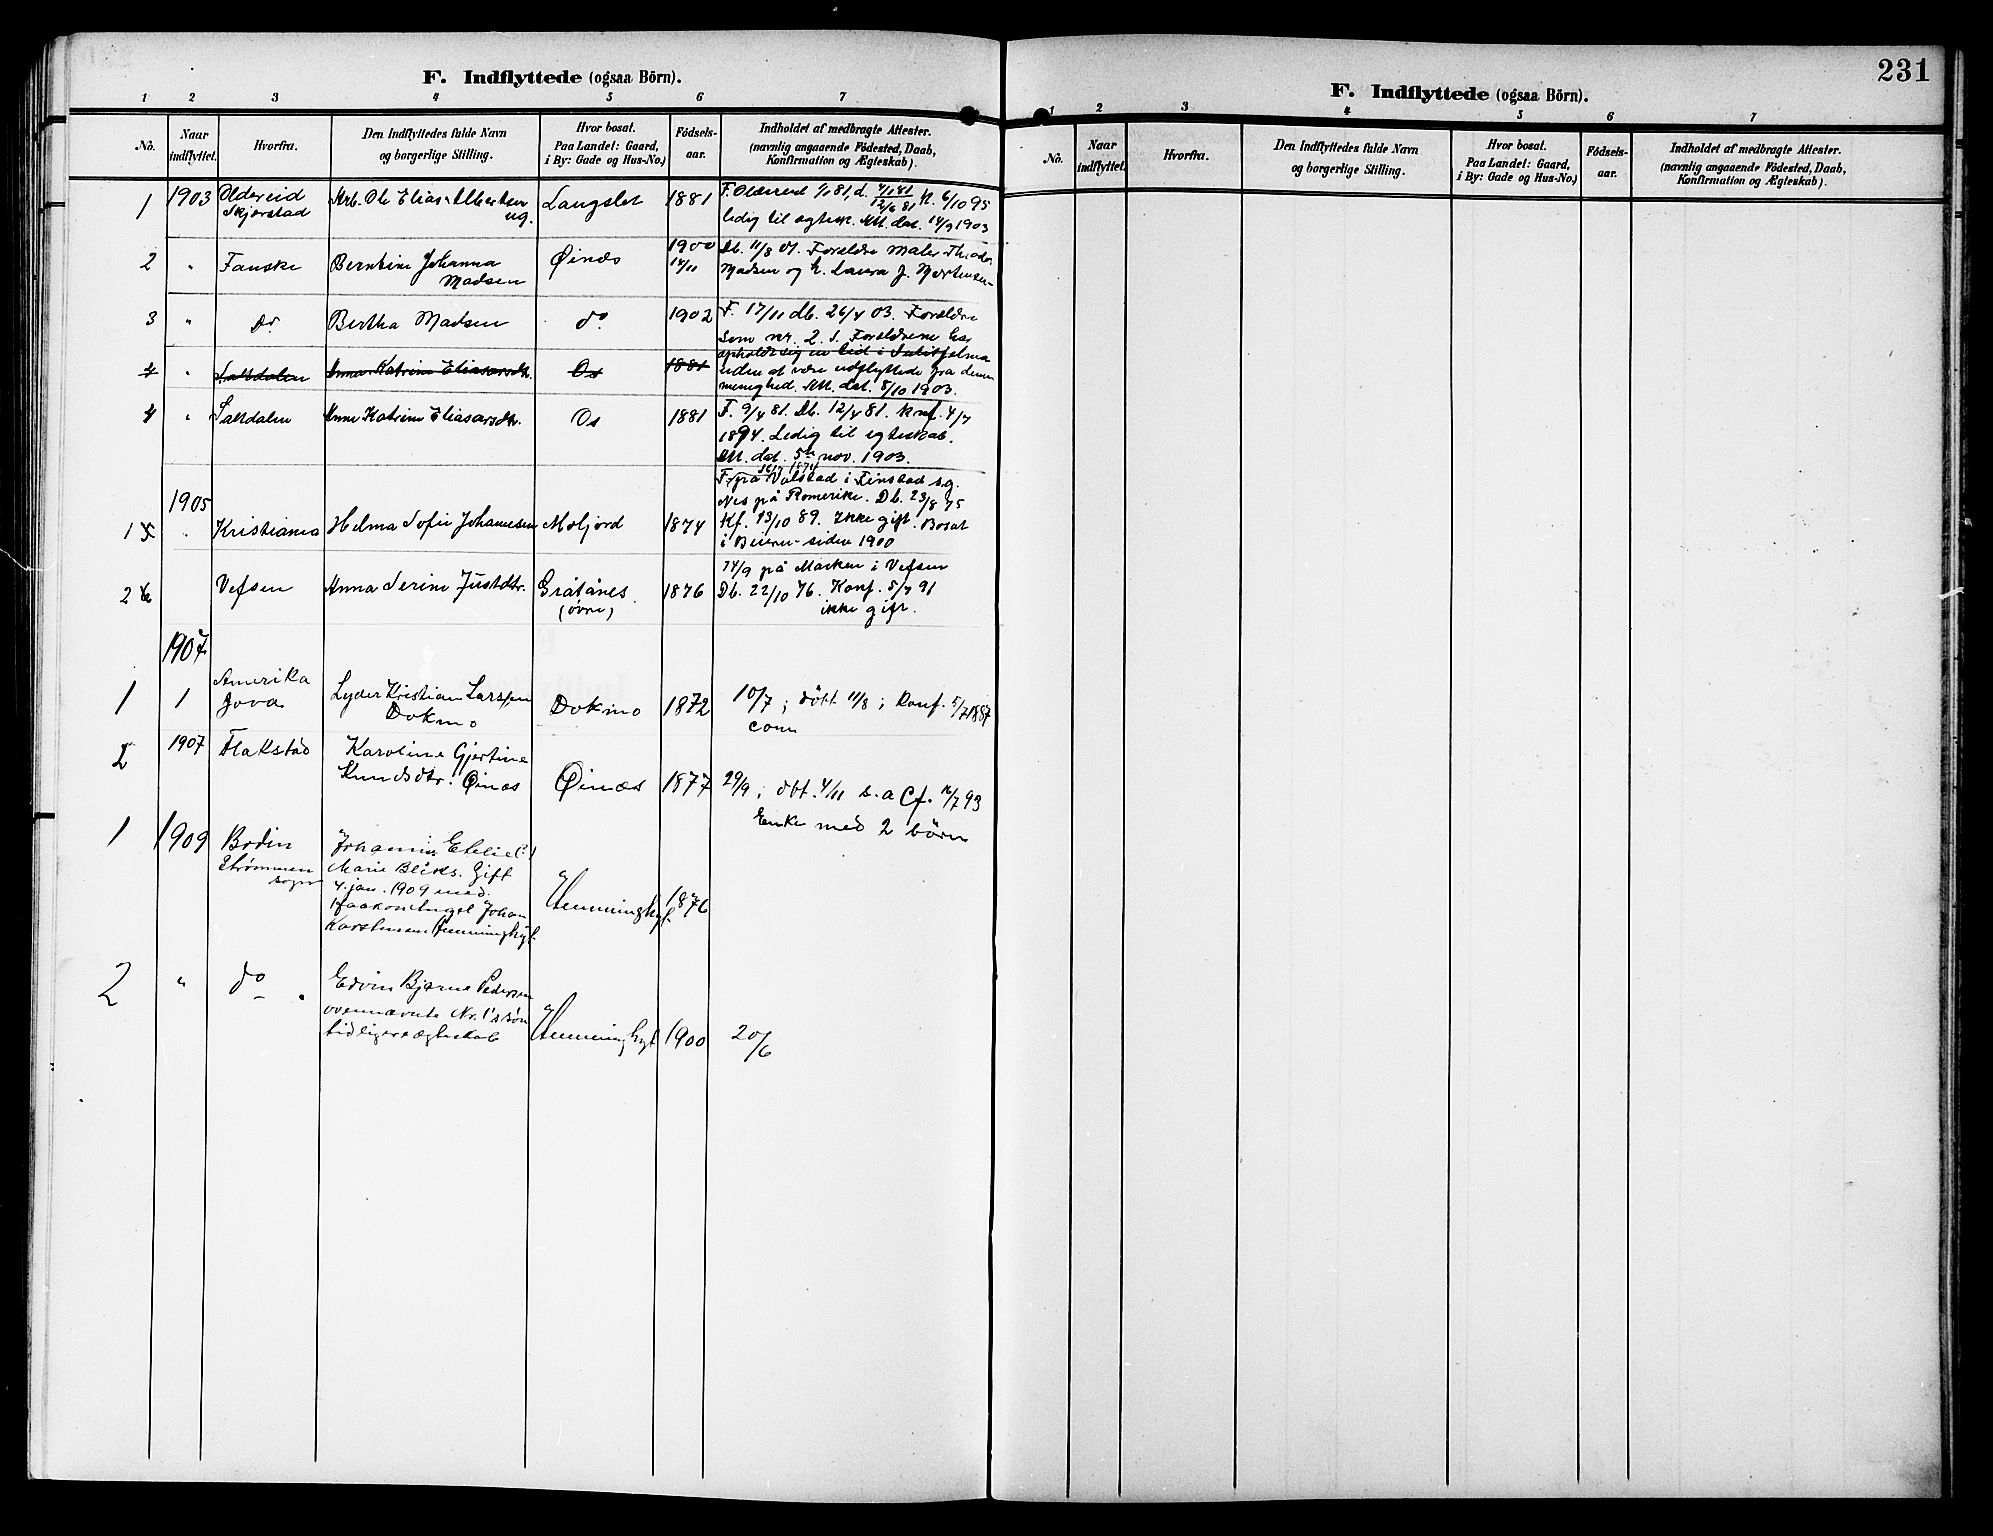 231
F. Indflyttede (ogsaa Börn).
1 2 3 4 5 6 7
No.
Naar indflyttet.
Hvorfra.
Den Indflyttedes fulde Navn og borgerlige Stilling.
Hvor bosat. Paa Landet: Gaard, i By: Gade og Hus-No.)
Födsels-aar.
Indholdet af medbragte Attester. (navnlig angaaende Födested, Daab, Konfirmation og Ægteskab).
1 1903 Oldereid Ole Elias Albertsen Langslet 1881
Skjerstad ug.
ledig til egtesk. Att. dat. 14/9 1903
2 " Fauske Berntine Johanna Madsen Øinæs 1900 14/11
Db. 11/8 01. Forældre Maler
Madsen og h. Laura J. Mortensen
3 " Do Bertha Madsen do 1902
F. 17/11 db. 26/4 03. Forældre
som nr. 2. Forældrene har
opholdt sig en tid i
uden at være udflyttede fra denne
menighed. Att. dat. 8/10 1903.
4 " Saltdalen Anna Katrine Eliasarsdtr. Os 1881
4 " Saltdalen Anne Katrine Eliasarsdtr. Os 1881
F. 9/4 81. Db. 12/4 81. knf. 4/7
1894. Ledig til egteskab.
Att. dat. 5te nov. 1903.
1905
1 5 " Kristiania Helma Sofie Johannesen Moljord 1874
på Valstad i Finstad sg.
Nes på Romerike. Db. 23/8 75
Kf. 13/10 89. Ikke gift. Bosat
i Beieren siden 1900
2 6 Vefsen Anna Serine Justdtr. Gråtånes (øvre) 1876
14/9 på Marken i Vefsen
Db. 22/10 76. Konf. 5/7 91
ikke gift.
1907
1 1 Amerika Jova Lyder Kristian Larssen Dokmo Dokmo 1872
10/7; döbt 11/8; Konf. 5/7 1887
2 1907 Flakstad Karoline Gjertine Knudsdtr. Øinæs Øinæs 1877
29/9; dbt. 4/11 s.a Cf. 16/7 93
Enke med 2 börn
1 1909 Bodin
Strømmen sogn
Marie Gift
4. jan. 1909 med
Haakon Johan
1876
2 " do Edvin Bjarne Pedersen
ovennævnte Nr. 1's søn
tidligere ægteskab
1900 20/6
F. Indflyttede (ogsaa Börn).
1 2 3 4 5 6 7
No.
Naar indflyttet.
Hvorfra.
Den Indflyttedes fulde Navn og borgerlige Stilling.
Hvor bosat. Paa Landet: Gaard, i By: Gade og Hus-No.)
Födsels-aar.
Indholdet af medbragte Attester. (navnlig angaaende Födested, Daab, Konfirmation og Ægteskab).